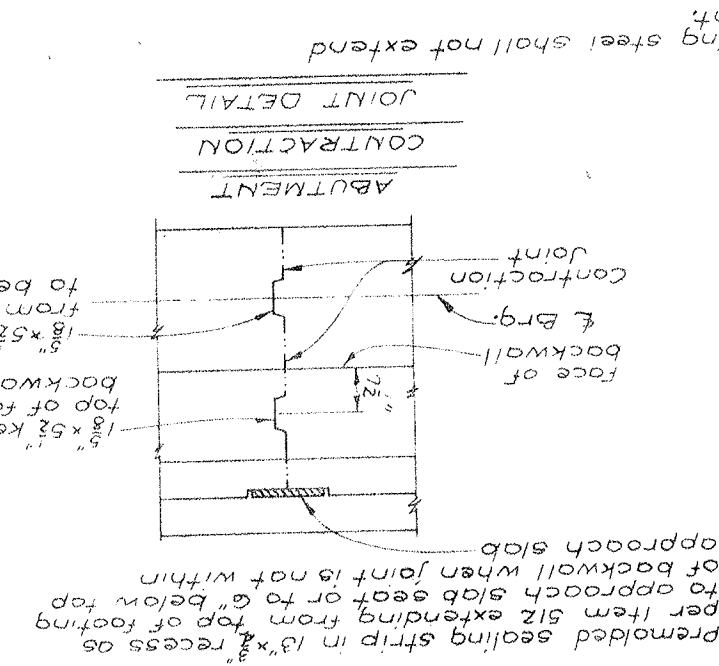 Premolded sealing strip in recess as
per Item 512 extending from top of footing
to approach slab seat or to 6" below top
of backwall when joint is not within
approach slab
1⅝" x 5½" ke
top of fo
backwa
7½"
Face of
backwall
℄ Brg.
Contraction
Joint
1⅝" x 5½"
from
to be
ABUTMENT
CONTRACTION
JOINT DETAIL
ng steel shall not extend
nt.